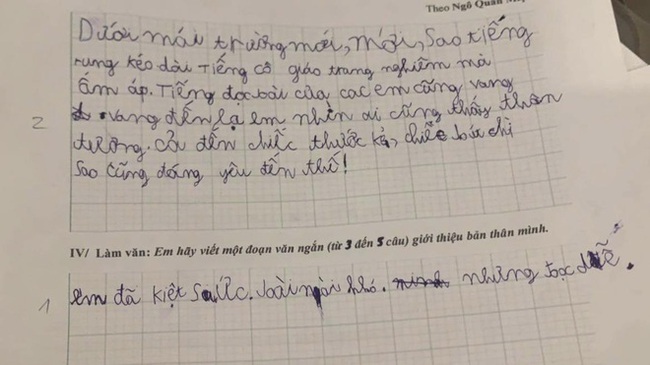 Theo Ngô Quân
Dưới mái trường mới, mới, Sao tiếng
rung kéo dài Tiếng cô giáo trang nghiêm mà
ấm áp. Tiếng đọc bài của các em cũng vang
vang đến lạ em nhìn ai cũng thấy thân
2
tương. cả đến chiếc thước kẻ, chiếc bút chì
Sao cũng đáng yêu đến thế!
IV/ Làm văn: Em hãy viết một đoạn văn ngắn (từ 3 đến 5 câu) giới thiệu bản thân mình.
1
em đã kiệt sức. bài khó. những đọc dễ.